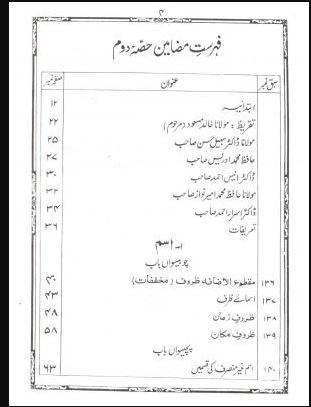 ۴
فہرستِ مضامین حصّہ دوم
سبق نمبر عنوان صفحہ نمبر
ابتدائیہ ۱۲
تقریظ : مولانا خالد مسعود (مرحوم) ۲۲
مولانا ڈاکٹر سہیل حسن صاحب ۲۵
حافظ محمد ادریس صاحب ۲۷
ڈاکٹر انیس احمد صاحب ۳۰
مولانا حافظ محمد امیر نواز صاحب ۳۲
ڈاکٹر اسرار احمد صاحب ۳۴
تعریفات ۳۶
۱۔ اسم
چوبیسواں باب
۱۳۶ مقطوع الاضافہ ظروف (مخففات) ۴۰
۱۳۷ اسمائے ظرف ۴۳
۱۳۸ ظروفِ زمان ۴۸
۱۳۹ ظروفِ مکان ۵۸
پچیسواں باب
۱۴۰ اسم غیر منصرف کی قسمیں ۶۳